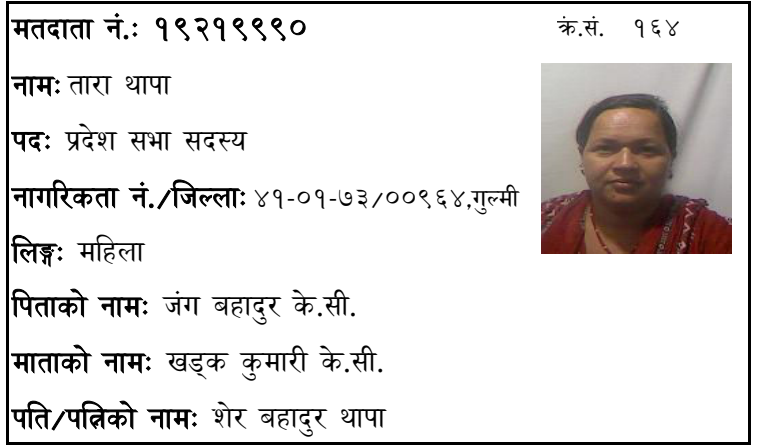 मतदाता नं.: १९२१९९९० क्रं.सं. १६४
नामः तारा थापा
पदः प्रदेश सभा सदस्य
नागरिकता नं./जिल्लाः ४१-०१-७३/००९६४,गुल्मी
लिङ्गः महिला
पिताको नामः जंग बहादुर के.सी.
माताको नामः खड्क कुमारी के.सी.
पति/पत्निको नामः शेर बहादुर थापा